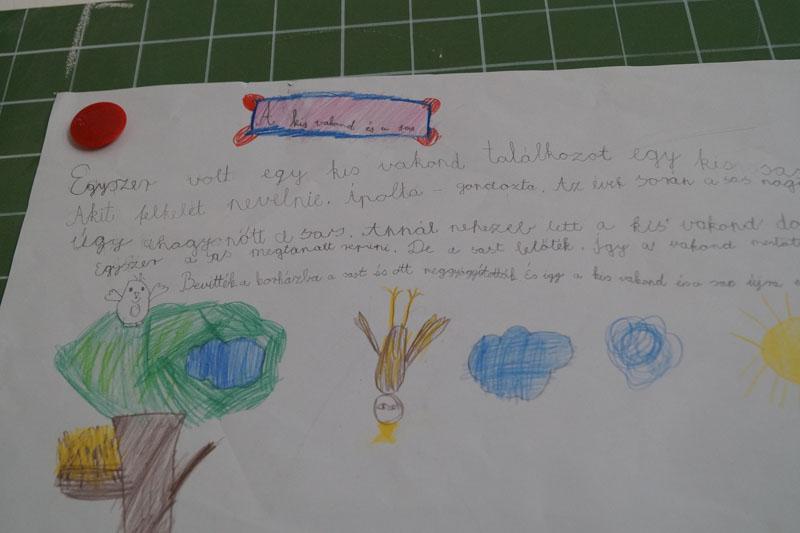 A kis vakond és a sas
Egyszer volt egy kis vakond találkozot egy kis sas
Akit felkelét nevelnie. Ápolta - gondozta. Az évek során a sas nagy
Úgy ahagy nőtt a sas. Annál nehezeb lett a kis vakond do
Egyszer a sas megtanalt repüni. De a sast lelőték. Így a vakond
Bevitték a borházba a sast és ott meggyógyították és így a kis vakond és a sas újra